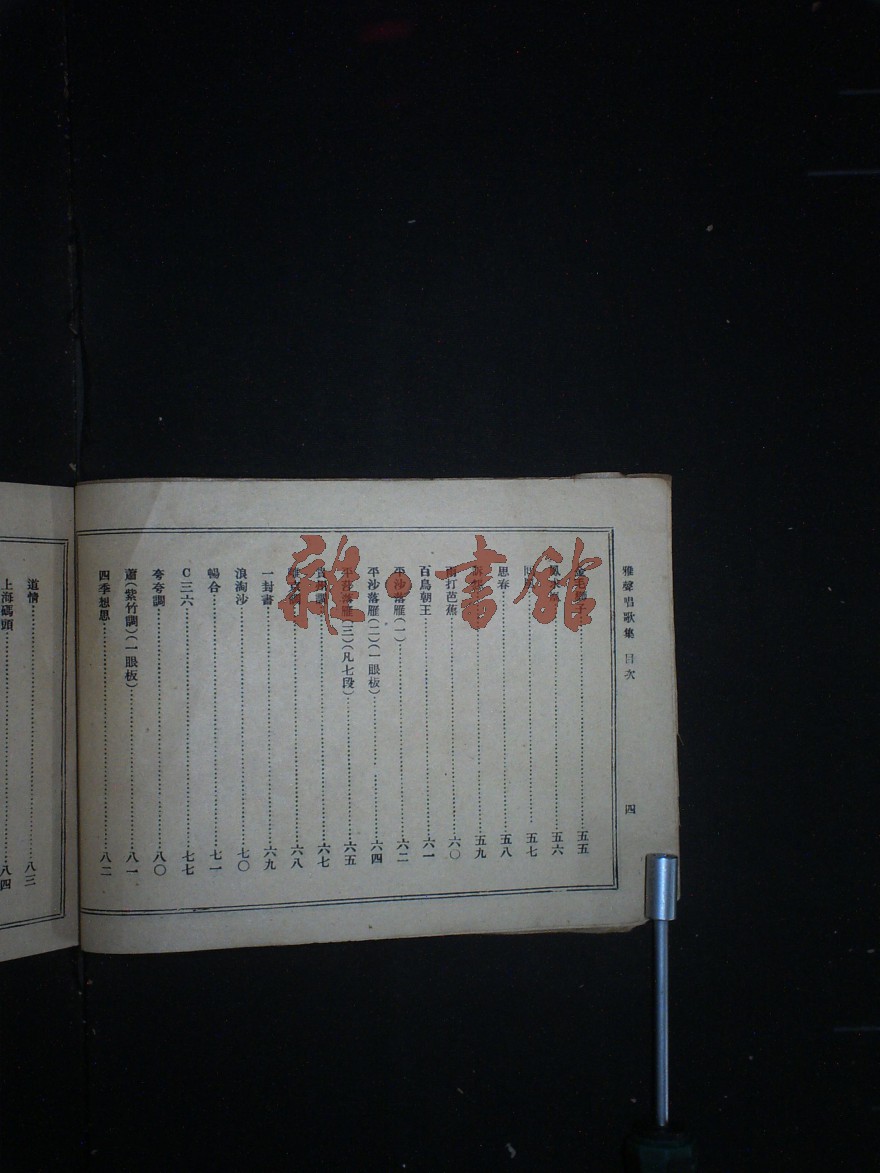 雅聲唱歌集 目次 四
五五
五六
五七
思春 五八
五九
雨打芭蕉 六〇
百鳥朝王 六一
平沙落雁(一) 六二
平沙落雁(二)(一眼板) 六四
平沙落雁(三)(凡七段) 六五
六七
六八
一封書 六九
浪淘沙 七〇
暢合 七一
C三六 七七
夸夸調 八〇
蕭(紫竹調)(一眼板) 八一
四季想思 八二
道情 八三
上海碼頭 八四
雜·書館